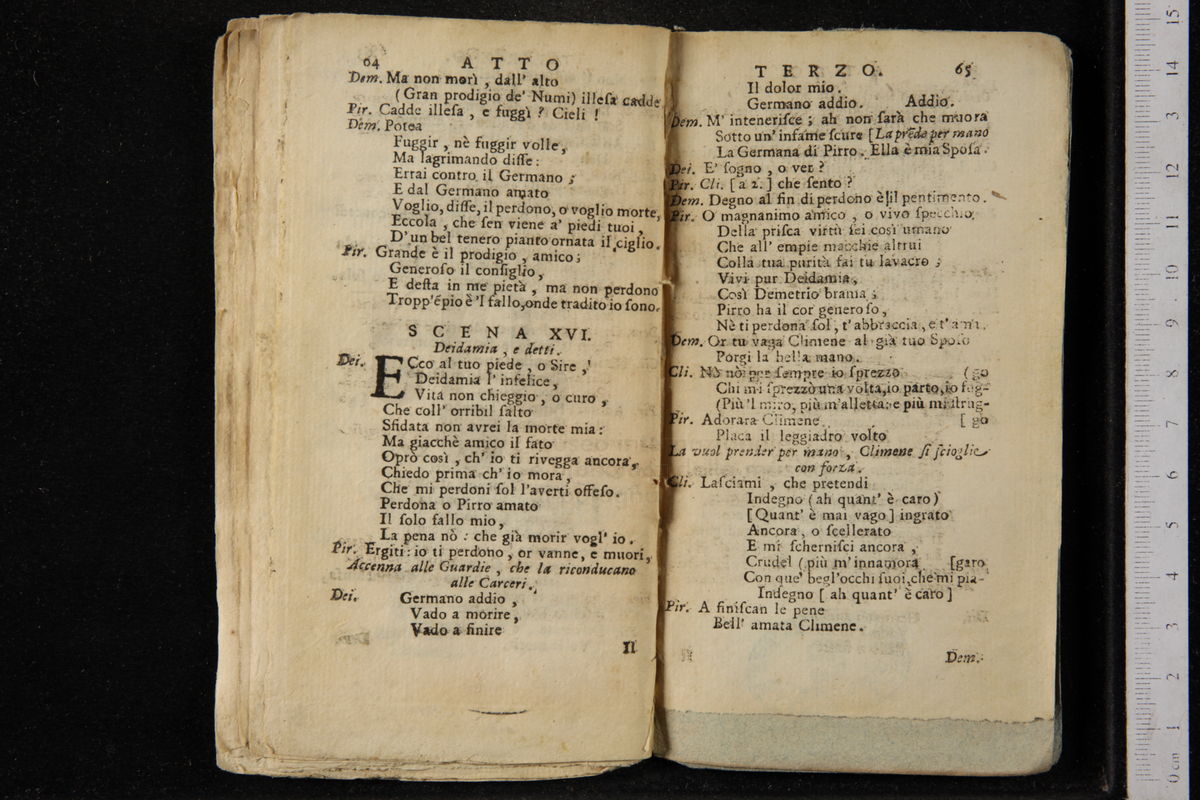 64 ATTO
Dem. Ma non morì, dall' alto
(Gran prodigio de' Numi) illeſa cadde
Pir. Cadde illeſa, e fuggì? Cieli!
Dem. Potea
Fuggir, nè fuggir volle,
Ma lagrimando diſſe:
Errai contro il Germano;
E dal Germano amato
Voglio, diſſe, il perdono, o voglio morte,
Eccola, che ſen viene a' piedi tuoi,
D'un bel tenero pianto ornata il ciglio.
Pir. Grande è il prodigio, amico;
Generoſo il conſiglio,
E deſta in me pietà, ma non perdono
Tropp'épio è 'l fallo, onde tradito io ſono.
SCENA XVI.
Deidamia, e detti.
Dei. ECco al tuo piede, o Sire,
Deidamia l' infelice,
Vita non chieggio, o curo,
Che coll' orribil ſalto
Sfidata non avrei la morte mia:
Ma giacchè amico il fato
Oprò così, ch' io ti rivegga ancora,
Chiedo prima ch' io mora,
Che mi perdoni ſol l'averti offeſo.
Perdona o Pirro amato
Il ſolo fallo mio,
La pena nò: che già morir vogl' io.
Pir. Ergiti: io ti perdono, or vanne, e muori,
Accenna alle Guardie, che la riconducano
alle Carceri.
Dei. Germano addio,
Vado a morire,
Vado a finire
Il
TERZO. 65
Il dolor mio.
Germano addio. Addio.
Dem. M' inteneriſce; ah non ſarà che muora
Sotto un' infame ſcure [La prẽde per mano
La Germana di Pirro. Ella è mia Spoſa.
Dei. E' ſogno, o ver?
Pir. Cli. [a 2.] che ſento?
Dem. Degno al fin di perdono è il pentimento.
Pir. O magnanimo amico, o vivo ſpecchio
Della priſca virtù ſei così umano
Che all' empie macchie altrui
Colla tua purità fai tu lavacro;
Vivi pur Deidamia,
Così Demetrio brama;
Pirro ha il cor generoſo,
Nè ti perdona ſol, t'abbraccia, e t'ama.
Dem. Or tu vaga Climene al già tuo Spoſo
Porgi la bella mano.
Cli. Nò nò: per ſempre io ſprezzo (go
Chi mi ſprezzò una volta, io parto, io fug-
(Più 'l miro, più m'alletta: e più mi ſtrug-
Pir. Adorara Climene [go
Placa il leggiadro volto
La vuol prender per mano, Climene ſi ſcioglie
con forza.
Cli. Laſciami, che pretendi
Indegno (ah quant' è caro)
[Quant' è mai vago] ingrato
Ancora, o ſcellerato
E mi ſcherniſci ancora,
Crudel (più m'innamora [garo
Con que' begl'occhi ſuoi, che mi pia-
Indegno [ah quant' è caro]
Pir. A finiſcan le pene
Bell' amata Climene.
Dem.